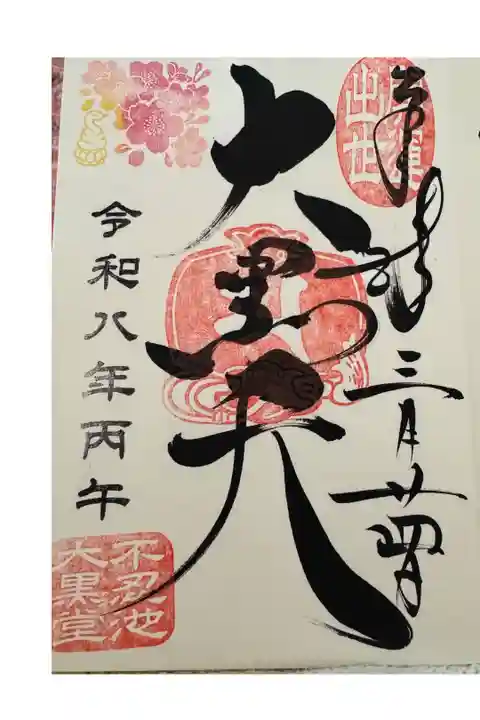 奉拝
三月廿四日
開運
出世
大黒天
令和八年丙午
不忍池
大黒堂